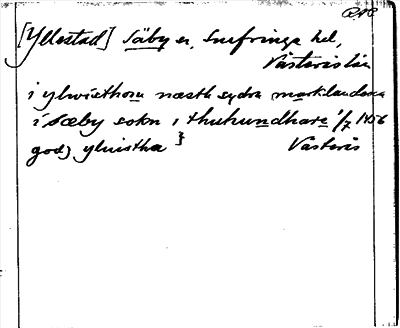 RAP
[Yllestad] Säby sn, Snefringe hd,
Västerås län
i ylwisthom næsth sydra marklandena
i sæby sokn i thuhundhare 1/7 1456
godz ylwistha } Västerås